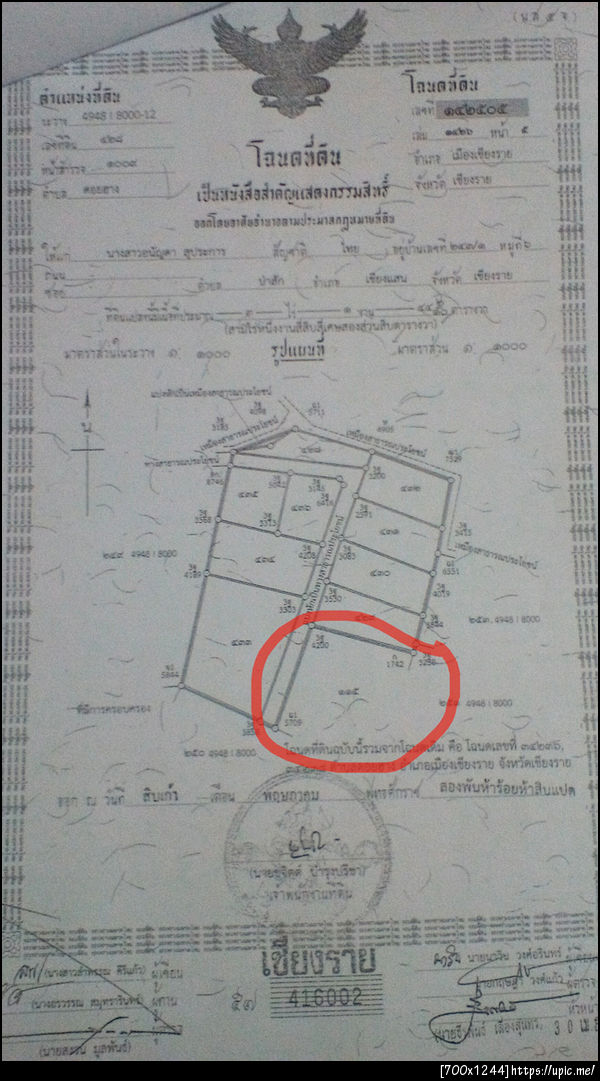 (น.ส. ๔ จ.)
ตำแหน่งที่ดิน
ระวาง 4948 I 8000-12
เลขที่ดิน ๔๒๘
หน้าสำรวจ ๑๐๐๙
ตำบล ดอยฮาง
โฉนดที่ดิน
เลขที่ ๑๔๒๕๐๕
เล่ม ๑๔๒๖ หน้า ๕
อำเภอ เมืองเชียงราย
จังหวัด เชียงราย
โฉนดที่ดิน
เป็นหนังสือสำคัญแสดงกรรมสิทธิ์
ออกโดยอาศัยอำนาจตามประมวลกฎหมายที่ดิน
ให้แก่ นางสาวอนัญดา สุประการ สัญชาติ ไทย อยู่บ้านเลขที่ ๒๔๗/๑ หมู่ที่ ๖
ถนน
ซอย ตำบล ป่าสัก อำเภอ เชียงแสน จังหวัด เชียงราย
ที่ดินแปลงนี้มีเนื้อที่ประมาณ ๓ ไร่ ๑ งาน ตารางวา
(สามไร่หนึ่งงานสี่สิบสี่เศษสองส่วนสิบตารางวา)
มาตราส่วนในระวาง ๑: ๑๐๐๐ รูปแผนที่ มาตราส่วน ๑: ๑๐๐๐
แปลงหักเป็นเหมืองสาธารณประโยชน์
น
เหมืองสาธารณประโยชน์
เหมืองสาธารณประโยชน์
ทางสาธารณประโยชน์
5711
4905
7329
8746
๔๒๘
3200
๔๓๕
๔๓๖
3145
6416
๔๓๒
2591
3568
3313
4208
3083
๔๓๑
3415
เหมืองสาธารณประโยชน์
๒๔๙ 4948 I 8000
แปลงหักเป็นทางสาธารณประโยชน์
4189
๔๓๔
๔๓๐
6351
4019
3303
3530
๔๒๙
3844
๒๕๓ 4948 I 8000
๔๓๓
4200
1742
3256
5844
๑๑๕
๒๕๑ 4948 I 8000
ที่มีการครอบครอง
5709
๒๕๐ 4948 I 8000
โฉนดที่ดินฉบับนี้รวมจากโฉนดเดิม คือ โฉนดเลขที่ ๓๔๒๓๖,
ตำบลดอยฮาง อำเภอเมืองเชียงราย จังหวัดเชียงราย
ออก ณ วันที่ สิบเก้า เดือน พฤษภาคม พุทธศักราช สองพันห้าร้อยห้าสิบแปด
(นายชูจิตต์ บำรุงปรีชา)
เจ้าพนักงานที่ดิน
เชียงราย
๕๗ 416002
ผู้เขียน
ผู้ทาน
(นายสงวน มูลพันธ์)
ผู้ตรวจ
หัวหน้า
[700x1244] https://upic.me/